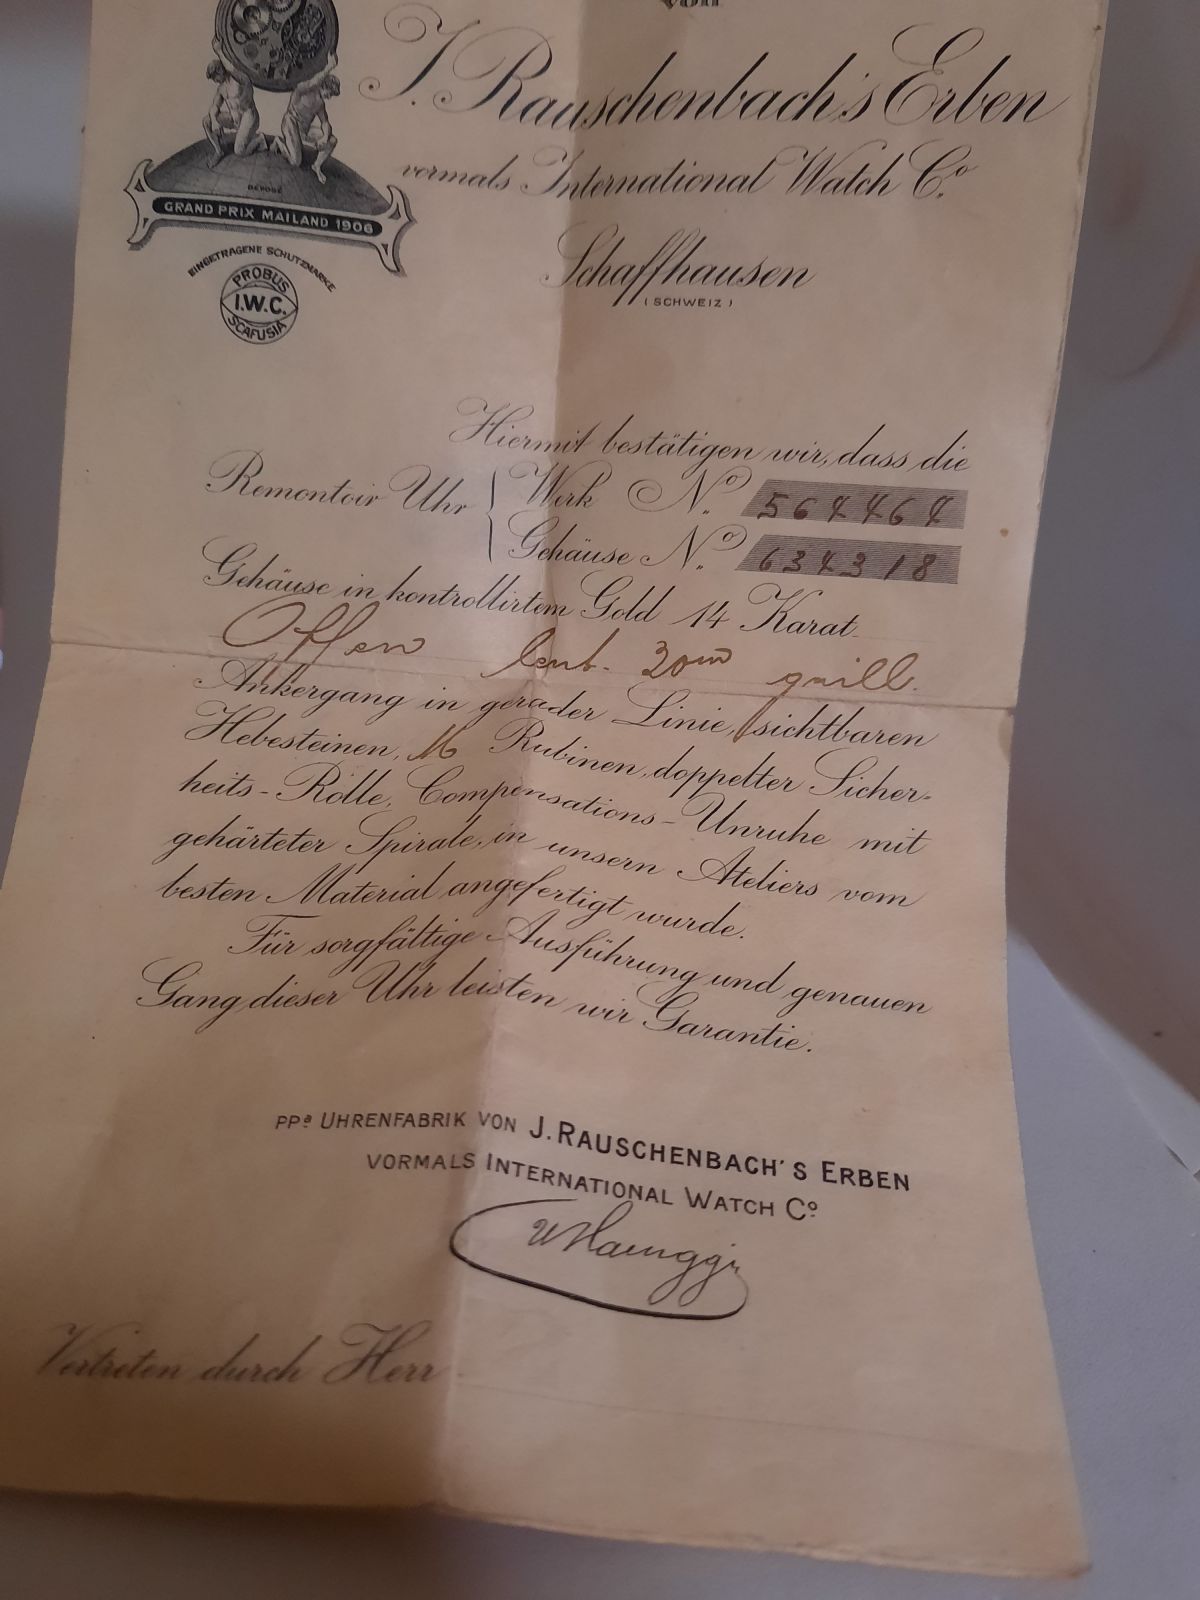 von
J. Rauschenbach's Erben
vormals International Watch Cº
Schaffhausen
(SCHWEIZ)
DÉPOSÉ
GRAND PRIX MAILAND 1906
EINGETRAGENE SCHUTZMARKE
PROBUS
I.W.C.
SCAFUSIA
Hiermit bestätigen wir, dass die
Remontoir Uhr { Werk Nº 564464
Gehäuse Nº 634318
Gehäuse in kontrollirtem Gold 14 Karat.
Offen guill.
Ankergang in gerader Linie, sichtbaren
Hebesteinen, 16 Rubinen, doppelter Sicher-
heits-Rolle, Compensations-Unruhe mit
gehärteter Spirale, in unsern Ateliers vom
besten Material angefertigt wurde.
Für sorgfältige Ausführung und genauen
Gang dieser Uhr leisten wir Garantie.
PPª UHRENFABRIK VON J. RAUSCHENBACH'S ERBEN
VORMALS INTERNATIONAL WATCH Cº
Vertreten durch Herr